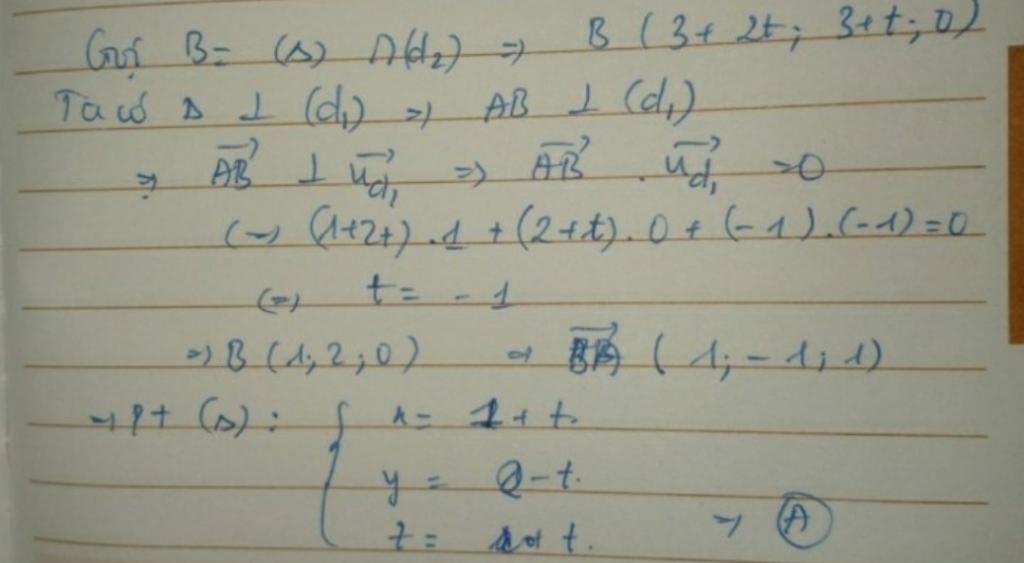 Gọi B = (Δ) ∩ (d₂) => B (3 + 2t; 3+t; 0)
Ta có Δ ⊥ (d₁) => AB ⊥ (d₁)
=> \overrightarrow{AB} ⊥ \overrightarrow{u_{d₁}} => \overrightarrow{AB} . \overrightarrow{u_{d₁}} = 0
(=) (1+2t).1 + (2+t).0 + (-1).(-1) = 0
(=) t = -1
=> B (1; 2; 0) => (1; -1; 1)
→ pt (Δ): { x = 1 + t.
y = 2 - t.
z = t. → A